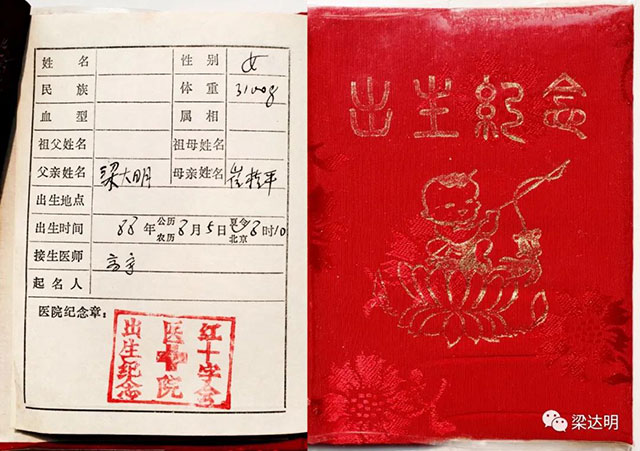 姓名 性别 女
民族 体重 3100g
血型 属相
祖父姓名 祖母姓名
父亲姓名 梁大明 母亲姓名 崔 平
出生地点
出生时间 88年 公历 农历 8月5日 夏令 北京 8时10
接生医师
起名人
医院纪念章：
红十字会
医院
出生纪念
出生紀念
梁达明